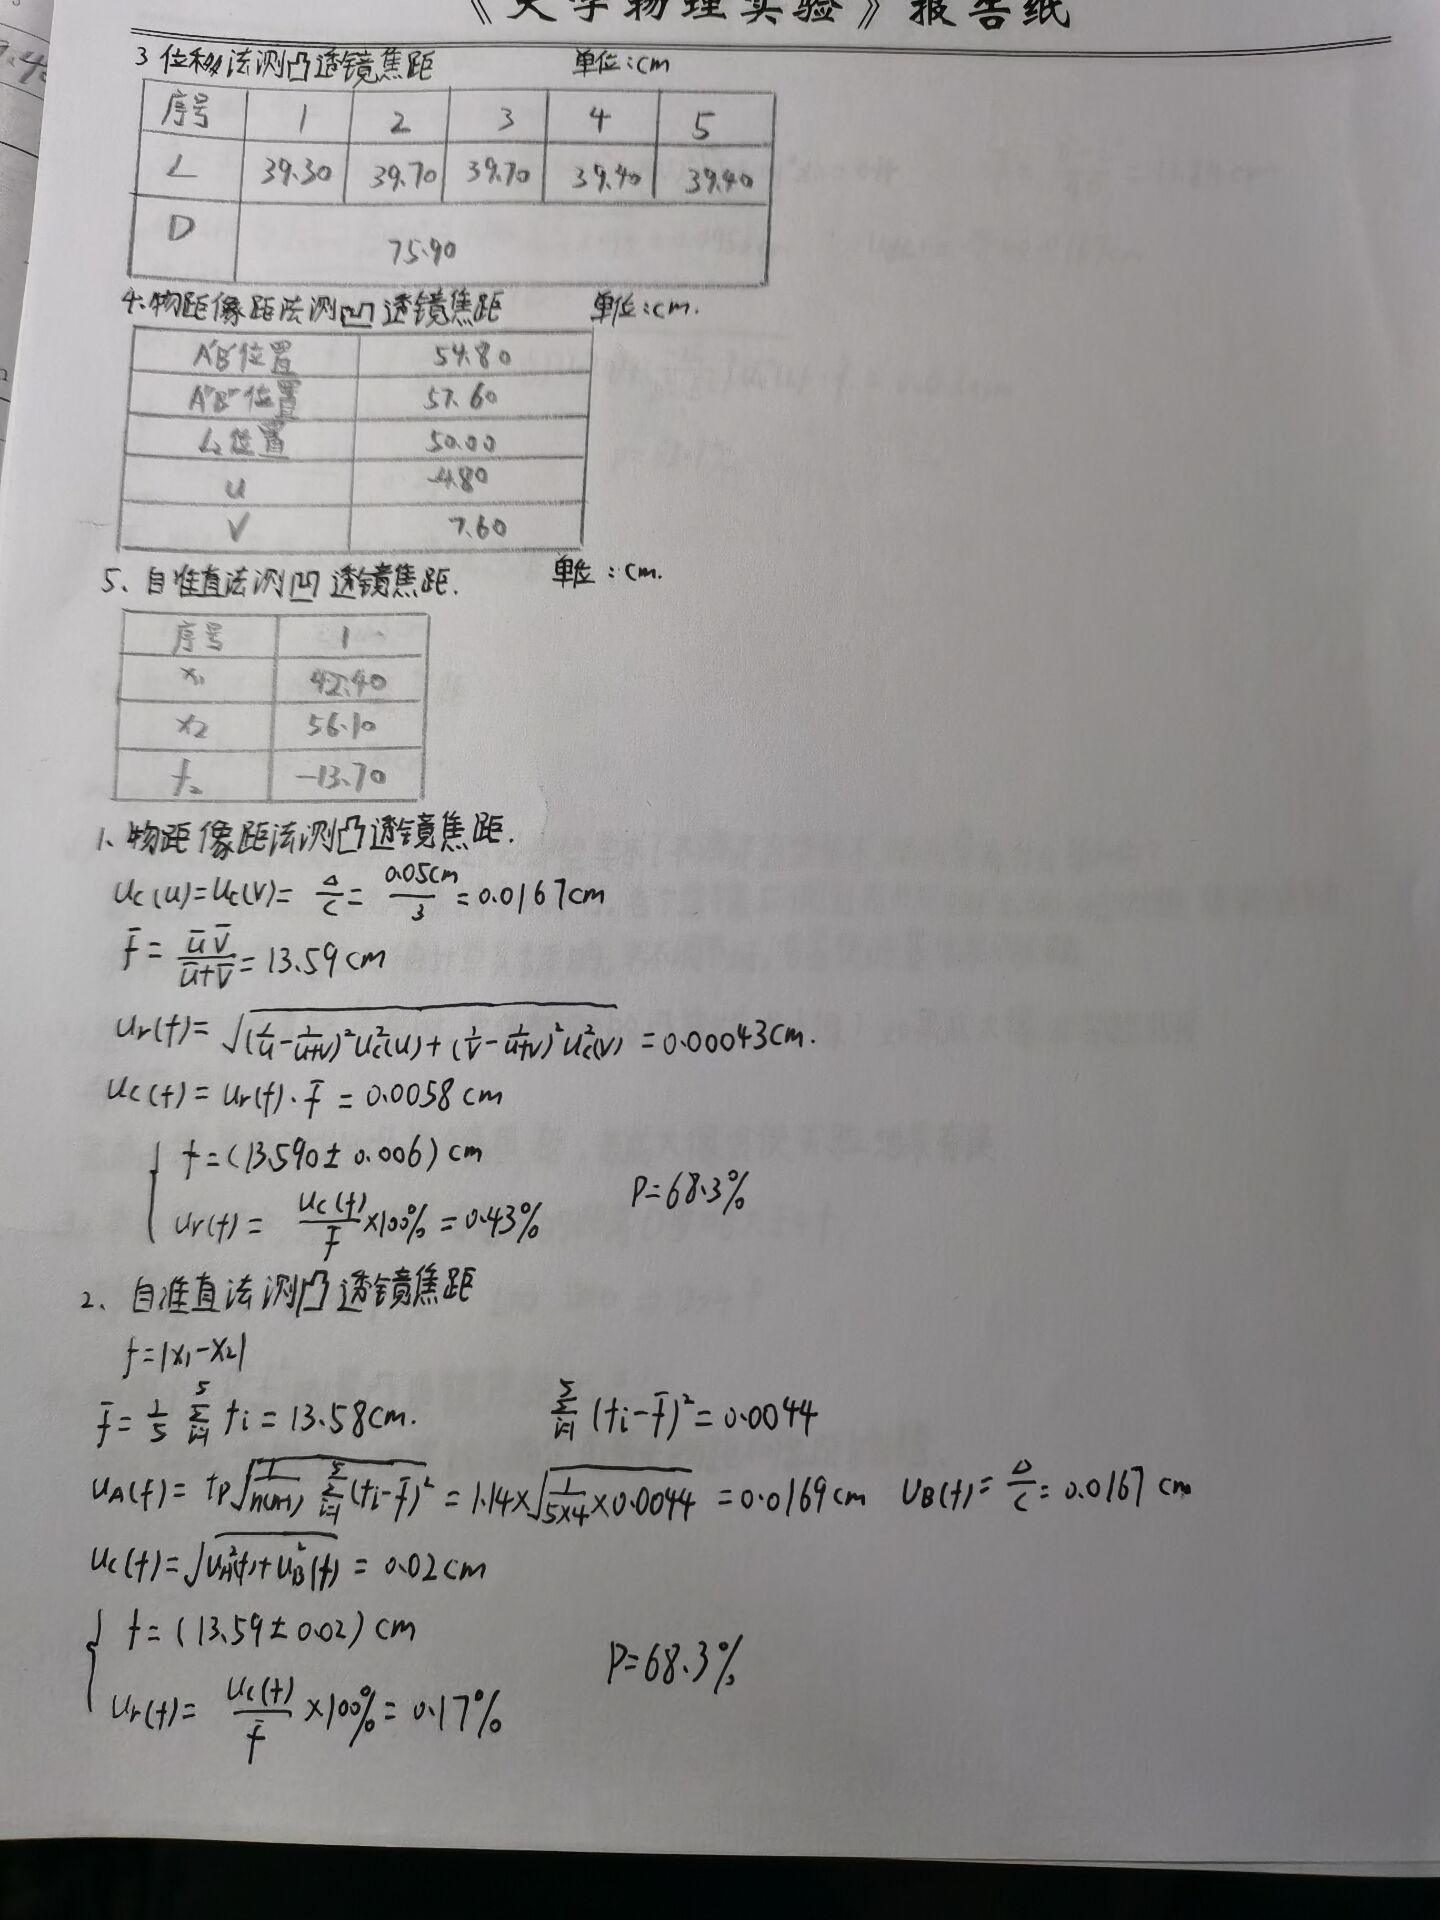 《大学物理实验》报告纸
3 位移法测凸透镜焦距 单位:cm
序号 1 2 3 4 5
L 39.30 39.70 39.70 39.40 39.40
D 75.90
4.物距像距法测凹透镜焦距 单位:cm.
A'B'位置 54.80
A"B"位置 57.60
L₂位置 50.00
u -4.80
V 7.60
5、自准直法测凹透镜焦距. 单位:cm.
序号 1
x₁ 42.40
x₂ 56.10
f₂ -13.70
1、物距像距法测凸透镜焦距.
Uc(u)=Uc(V)= Δ/C = 0.05cm/3 =0.0167cm
f̄ = ūV̄/(ū+V̄) = 13.59cm
Ur(f)= √((1/u - 1/(u+v))²Uc²(u)+(1/v - 1/(u+v))²Uc²(v)) =0.00043cm.
Uc(f)= Ur(f)·f̄ = 0.0058cm
f=(13.590±0.006)cm
Ur(f)= Uc(f)/f̄ ×100% =0.43% P=68.3%
2、自准直法测凸透镜焦距
f=|x₁-x₂|
f̄= 1/5 Σ(i=1→5) fi = 13.58cm. Σ(i=1→5) (fi-f̄)²=0.0044
UA(f)= tp√(1/(n(n-1)) Σ(i=1→5)(fi-f̄)²) = 1.14×√(1/(5×4)×0.0044) =0.0169cm UB(f)= Δ/C = 0.0167cm
Uc(f)=√(UA²(f)+UB²(f)) = 0.02cm
f=(13.59±0.02)cm
P=68.3%
Ur(f)= Uc(f)/f̄ ×100%=0.17%